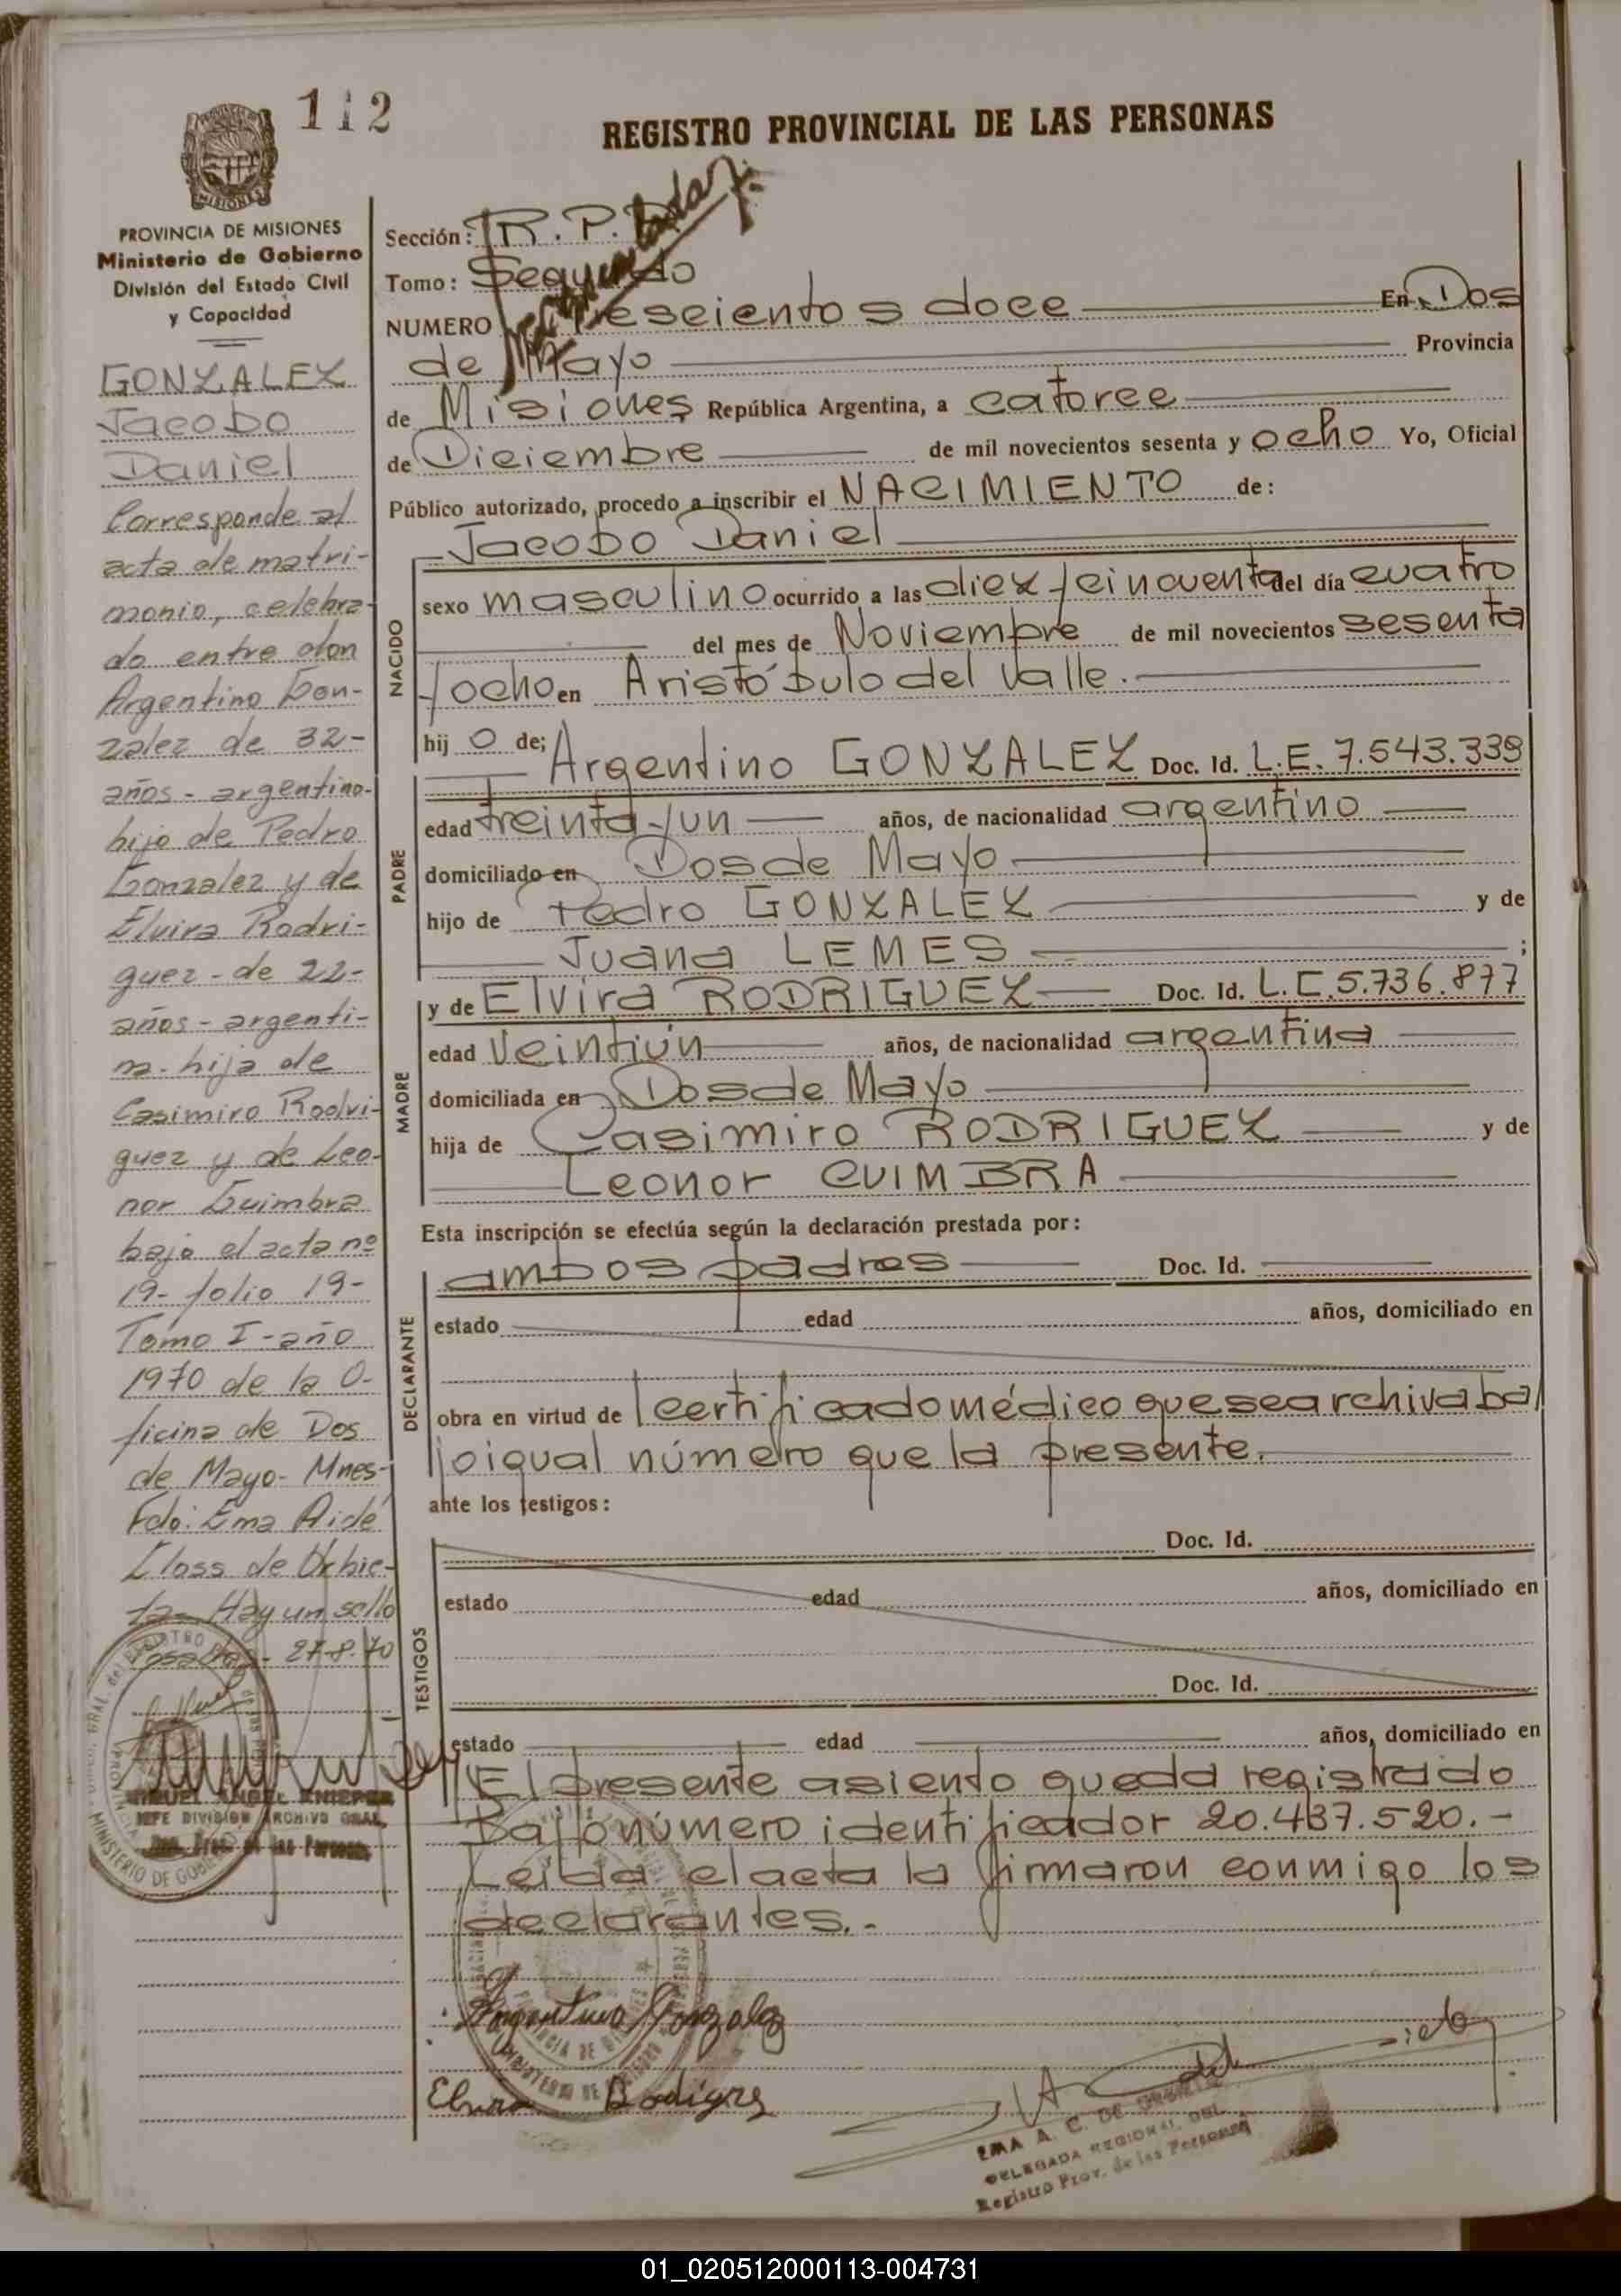 112
REGISTRO PROVINCIAL DE LAS PERSONAS
MISIONES
PROVINCIA DE MISIONES
Ministerio de Gobierno
División del Estado Civil
y Capacidad
GONZALEZ
Jacobo
Daniel
Corresponde al
acta de matri-
monio, celebra-
do entre don
Argentino Gon-
zalez de 32-
años - argentino-
hijo de Pedro
Gonzalez y de
Elvira Rodri-
guez - de 22-
años - argenti-
na - hija de
Casimiro Rodri-
guez y de Leo-
nor Guimbra
bajo el acta nº
19- folio 19-
Tomo I - año
1970 de la O-
ficina de Dos
de Mayo - Mnes-
Fdo: Ema Aidé
Closs de Urbie-
ta - Hay un sello
Posadas - 27-8-70
MIGUEL ANGEL KNIEPER
JEFE DIVISION ARCHIVO GRAL
MINISTERIO DE GOBIERNO
Sección: R. P.
Tomo: Segundo
NUMERO Trescientos doce En Dos
de Mayo Provincia
de Misiones República Argentina, a catorce
de Diciembre de mil novecientos sesenta y ocho Yo, Oficial
Público autorizado, procedo a inscribir el NACIMIENTO de:
Jacobo Daniel
NACIDO
sexo masculino ocurrido a las diez y cincuenta del día cuatro
del mes de Noviembre de mil novecientos sesenta
y ocho en Aristóbulo del Valle.
hij o de; Argentino GONZALEZ Doc. Id. L.E. 7.543.339
PADRE
edad treinta y un años, de nacionalidad argentino
domiciliado en Dos de Mayo
hijo de Pedro GONZALEZ y de
Juana LEMES ;
y de Elvira RODRIGUEZ Doc. Id. L.C. 5.736.877
MADRE
edad Veintiún años, de nacionalidad argentina
domiciliada en Dos de Mayo
hija de Casimiro RODRIGUEZ y de
Leonor CUIMBRA
Esta inscripción se efectúa según la declaración prestada por:
DECLARANTE
ambos padres Doc. Id.
estado edad años, domiciliado en
obra en virtud de certificado médico que se archiva ba
jo igual número que la presente.
ante los testigos:
TESTIGOS
Doc. Id.
estado edad años, domiciliado en
Doc. Id.
estado edad años, domiciliado en
El presente asiento queda registrado
Bajo número identificador 20.437.520.-
Leída el acta la firmaron conmigo los
declarantes.-
Argentino Gonzalez
Elvira Rodigre
EMA A. C. DE
DELEGADA REGIONAL DEL
Registro Prov. de las Personas
01_020512000113-004731